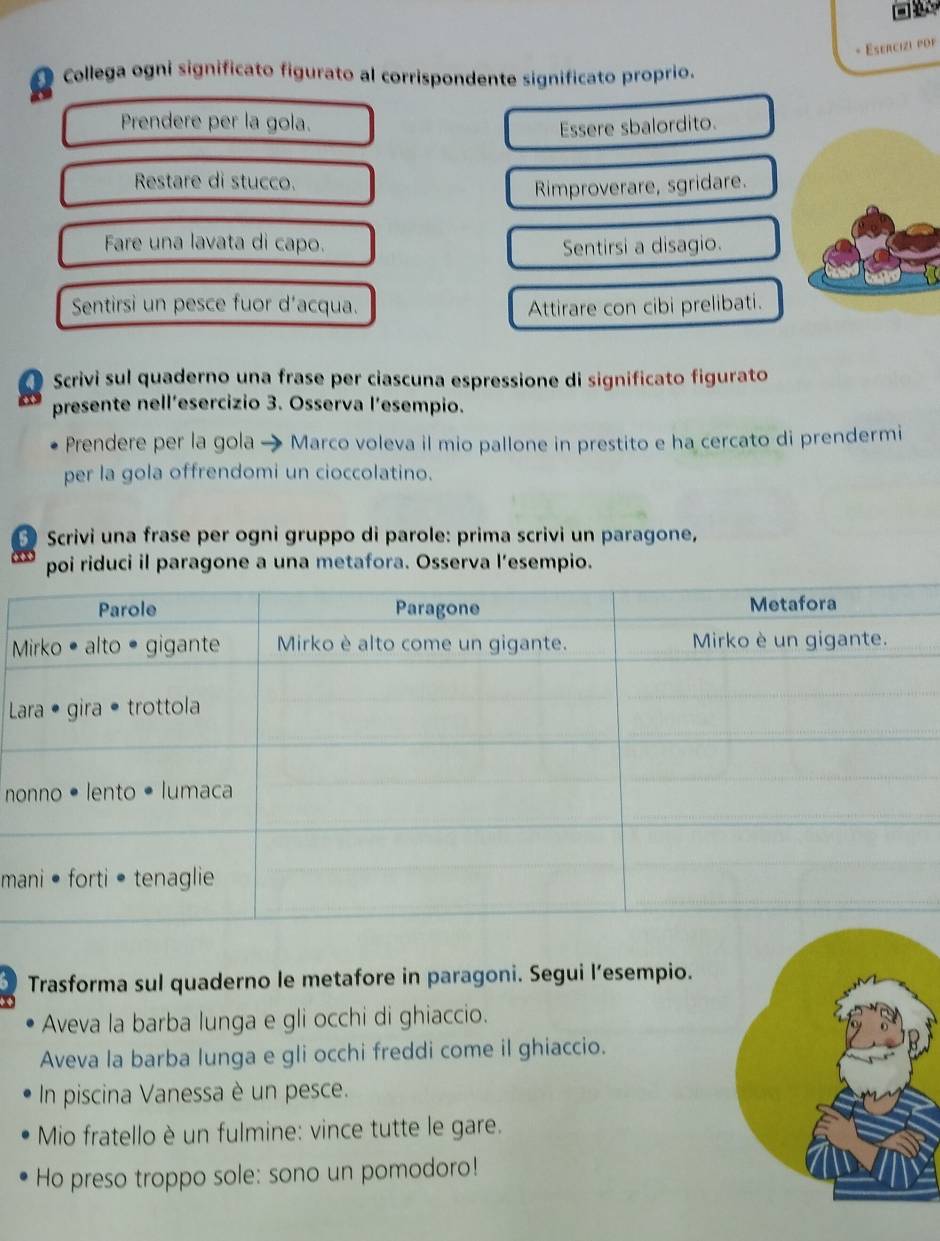 + ESERCIZI PDF
3 Collega ogni significato figurato al corrispondente significato proprio.
Prendere per la gola.
Essere sbalordito.
Restare di stucco.
Rimproverare, sgridare.
Fare una lavata di capo.
Sentirsi a disagio.
Sentirsi un pesce fuor d'acqua.
Attirare con cibi prelibati.
4 Scrivi sul quaderno una frase per ciascuna espressione di significato figurato
presente nell'esercizio 3. Osserva l'esempio.
• Prendere per la gola → Marco voleva il mio pallone in prestito e ha cercato di prendermi
per la gola offrendomi un cioccolatino.
5 Scrivi una frase per ogni gruppo di parole: prima scrivi un paragone,
poi riduci il paragone a una metafora. Osserva l'esempio.
Parole Paragone Metafora
Mirko • alto • gigante Mirko è alto come un gigante. Mirko è un gigante.
Lara • gira • trottola
nonno • lento • lumaca
mani • forti • tenaglie
6 Trasforma sul quaderno le metafore in paragoni. Segui l'esempio.
• Aveva la barba lunga e gli occhi di ghiaccio.
Aveva la barba lunga e gli occhi freddi come il ghiaccio.
• In piscina Vanessa è un pesce.
• Mio fratello è un fulmine: vince tutte le gare.
• Ho preso troppo sole: sono un pomodoro!